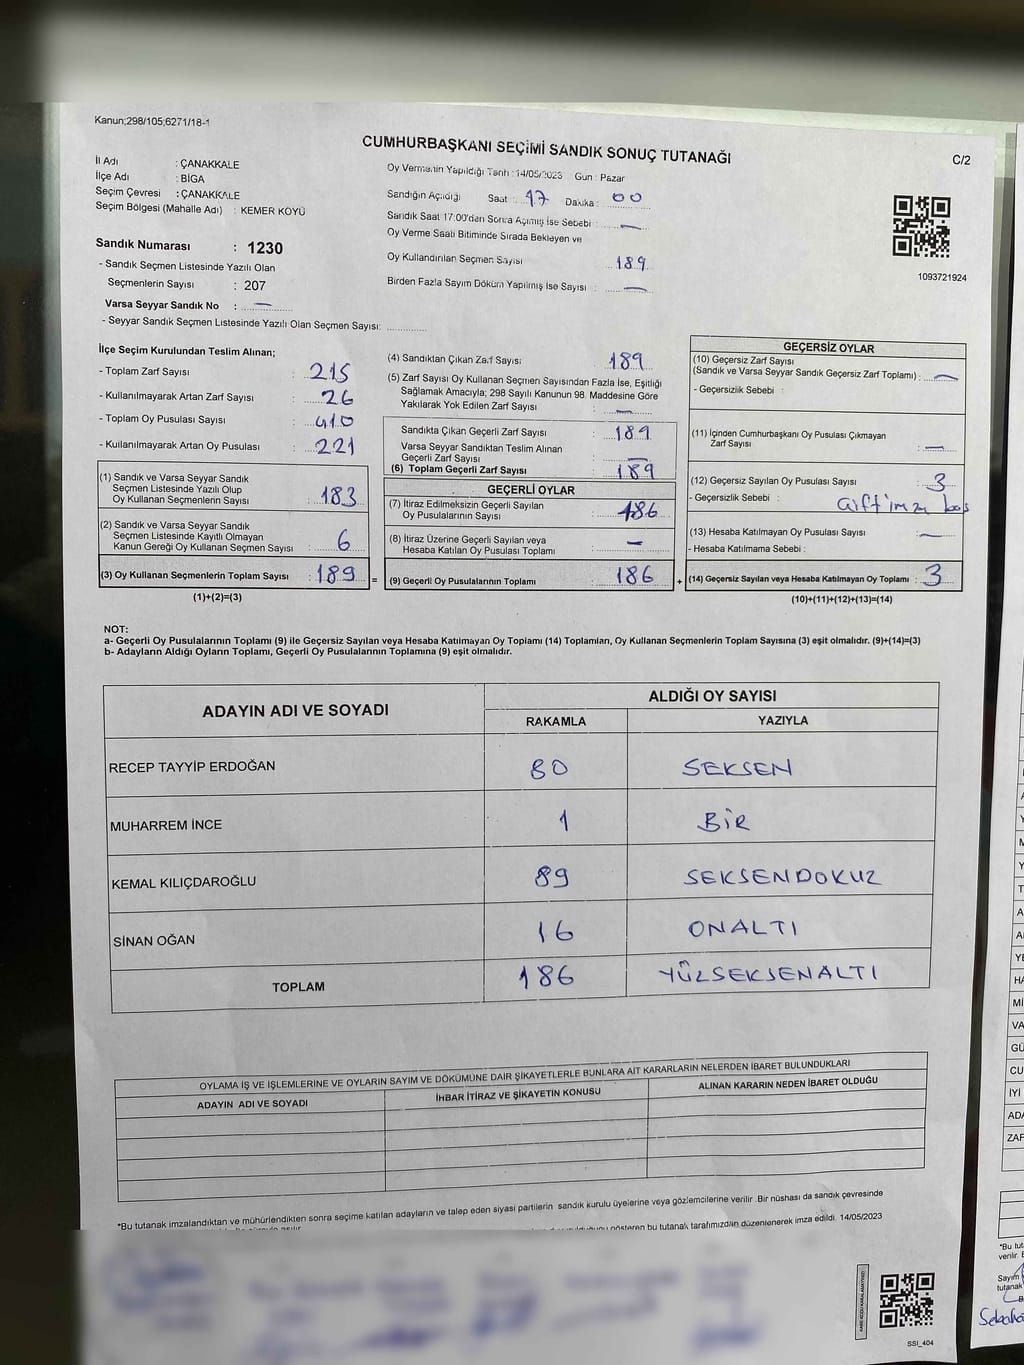 Kanun;298/105;6271/18-1
CUMHURBAŞKANI SEÇİMİ SANDIK SONUÇ TUTANAĞI
C/2
İl Adı : ÇANAKKALE
İlçe Adı : BİGA
Seçim Çevresi : ÇANAKKALE
Seçim Bölgesi (Mahalle Adı) : KEMER KÖYÜ
Sandık Numarası : 1230
- Sandık Seçmen Listesinde Yazılı Olan
Seçmenlerin Sayısı : 207
Varsa Seyyar Sandık No : —
- Seyyar Sandık Seçmen Listesinde Yazılı Olan Seçmen Sayısı:
Oy Vermenin Yapıldığı Tarih : 14/05/2023 Gün : Pazar
Sandığın Açıldığı Saat : 17 Dakika : 00
Sandık Saat 17:00'dan Sonra Açılmış İse Sebebi : —
Oy Verme Saati Bitiminde Sırada Bekleyen ve
Oy Kullandırılan Seçmen Sayısı : 189
Birden Fazla Sayım Döküm Yapılmış İse Sayısı : —
1093721924
İlçe Seçim Kurulundan Teslim Alınan;
- Toplam Zarf Sayısı : 215
- Kullanılmayarak Artan Zarf Sayısı : 26
- Toplam Oy Pusulası Sayısı : 410
- Kullanılmayarak Artan Oy Pusulası : 221
(1) Sandık ve Varsa Seyyar Sandık
Seçmen Listesinde Yazılı Olup
Oy Kullanan Seçmenlerin Sayısı : 183
(2) Sandık ve Varsa Seyyar Sandık
Seçmen Listesinde Kayıtlı Olmayan
Kanun Gereği Oy Kullanan Seçmen Sayısı : 6
(3) Oy Kullanan Seçmenlerin Toplam Sayısı : 189 =
(1)+(2)=(3)
(4) Sandıktan Çıkan Zarf Sayısı : 189
(5) Zarf Sayısı Oy Kullanan Seçmen Sayısından Fazla İse, Eşitliği
Sağlamak Amacıyla; 298 Sayılı Kanunun 98. Maddesine Göre
Yakılarak Yok Edilen Zarf Sayısı : —
Sandıkta Çıkan Geçerli Zarf Sayısı : 189
Varsa Seyyar Sandıktan Teslim Alınan
Geçerli Zarf Sayısı : —
(6) Toplam Geçerli Zarf Sayısı : 189
GEÇERLİ OYLAR
(7) İtiraz Edilmeksizin Geçerli Sayılan
Oy Pusulalarının Sayısı : 186
(8) İtiraz Üzerine Geçerli Sayılan veya
Hesaba Katılan Oy Pusulası Toplamı : —
(9) Geçerli Oy Pusulalarının Toplamı : 186 +
GEÇERSİZ OYLAR
(10) Geçersiz Zarf Sayısı
(Sandık ve Varsa Seyyar Sandık Geçersiz Zarf Toplamı) : —
- Geçersizlik Sebebi :
(11) İçinden Cumhurbaşkanı Oy Pusulası Çıkmayan
Zarf Sayısı : —
(12) Geçersiz Sayılan Oy Pusulası Sayısı : 3
- Geçersizlik Sebebi : çift imza boş
(13) Hesaba Katılmayan Oy Pusulası Sayısı : —
- Hesaba Katılmama Sebebi :
(14) Geçersiz Sayılan veya Hesaba Katılmayan Oy Toplamı : 3
(10)+(11)+(12)+(13)=(14)
NOT:
a- Geçerli Oy Pusulalarının Toplamı (9) ile Geçersiz Sayılan veya Hesaba Katılmayan Oy Toplamı (14) Toplamları, Oy Kullanan Seçmenlerin Toplam Sayısına (3) eşit olmalıdır. (9)+(14)=(3)
b- Adayların Aldığı Oyların Toplamı, Geçerli Oy Pusulalarının Toplamına (9) eşit olmalıdır.
ADAYIN ADI VE SOYADI
ALDIĞI OY SAYISI
RAKAMLA YAZIYLA
RECEP TAYYİP ERDOĞAN 80 SEKSEN
MUHARREM İNCE 1 BİR
KEMAL KILIÇDAROĞLU 89 SEKSENDOKUZ
SİNAN OĞAN 16 ONALTI
TOPLAM 186 YÜZSEKSENALTI
OYLAMA İŞ VE İŞLEMLERİNE VE OYLARIN SAYIM VE DÖKÜMÜNE DAİR ŞİKAYETLERLE BUNLARA AİT KARARLARIN NELERDEN İBARET BULUNDUKLARI
ADAYIN ADI VE SOYADI İHBAR İTİRAZ VE ŞİKAYETİN KONUSU ALINAN KARARIN NEDEN İBARET OLDUĞU
*Bu tutanak imzalandıktan ve mühürlendikten sonra seçime katılan adayların ve talep eden siyasi partilerin sandık kurulu üyelerine veya gözlemcilerine verilir .Bir nüshası da sandık çevresinde
gösteren bu tutanak tarafımızdan düzenlenerek imza edildi. 14/05/2023
SSI_404